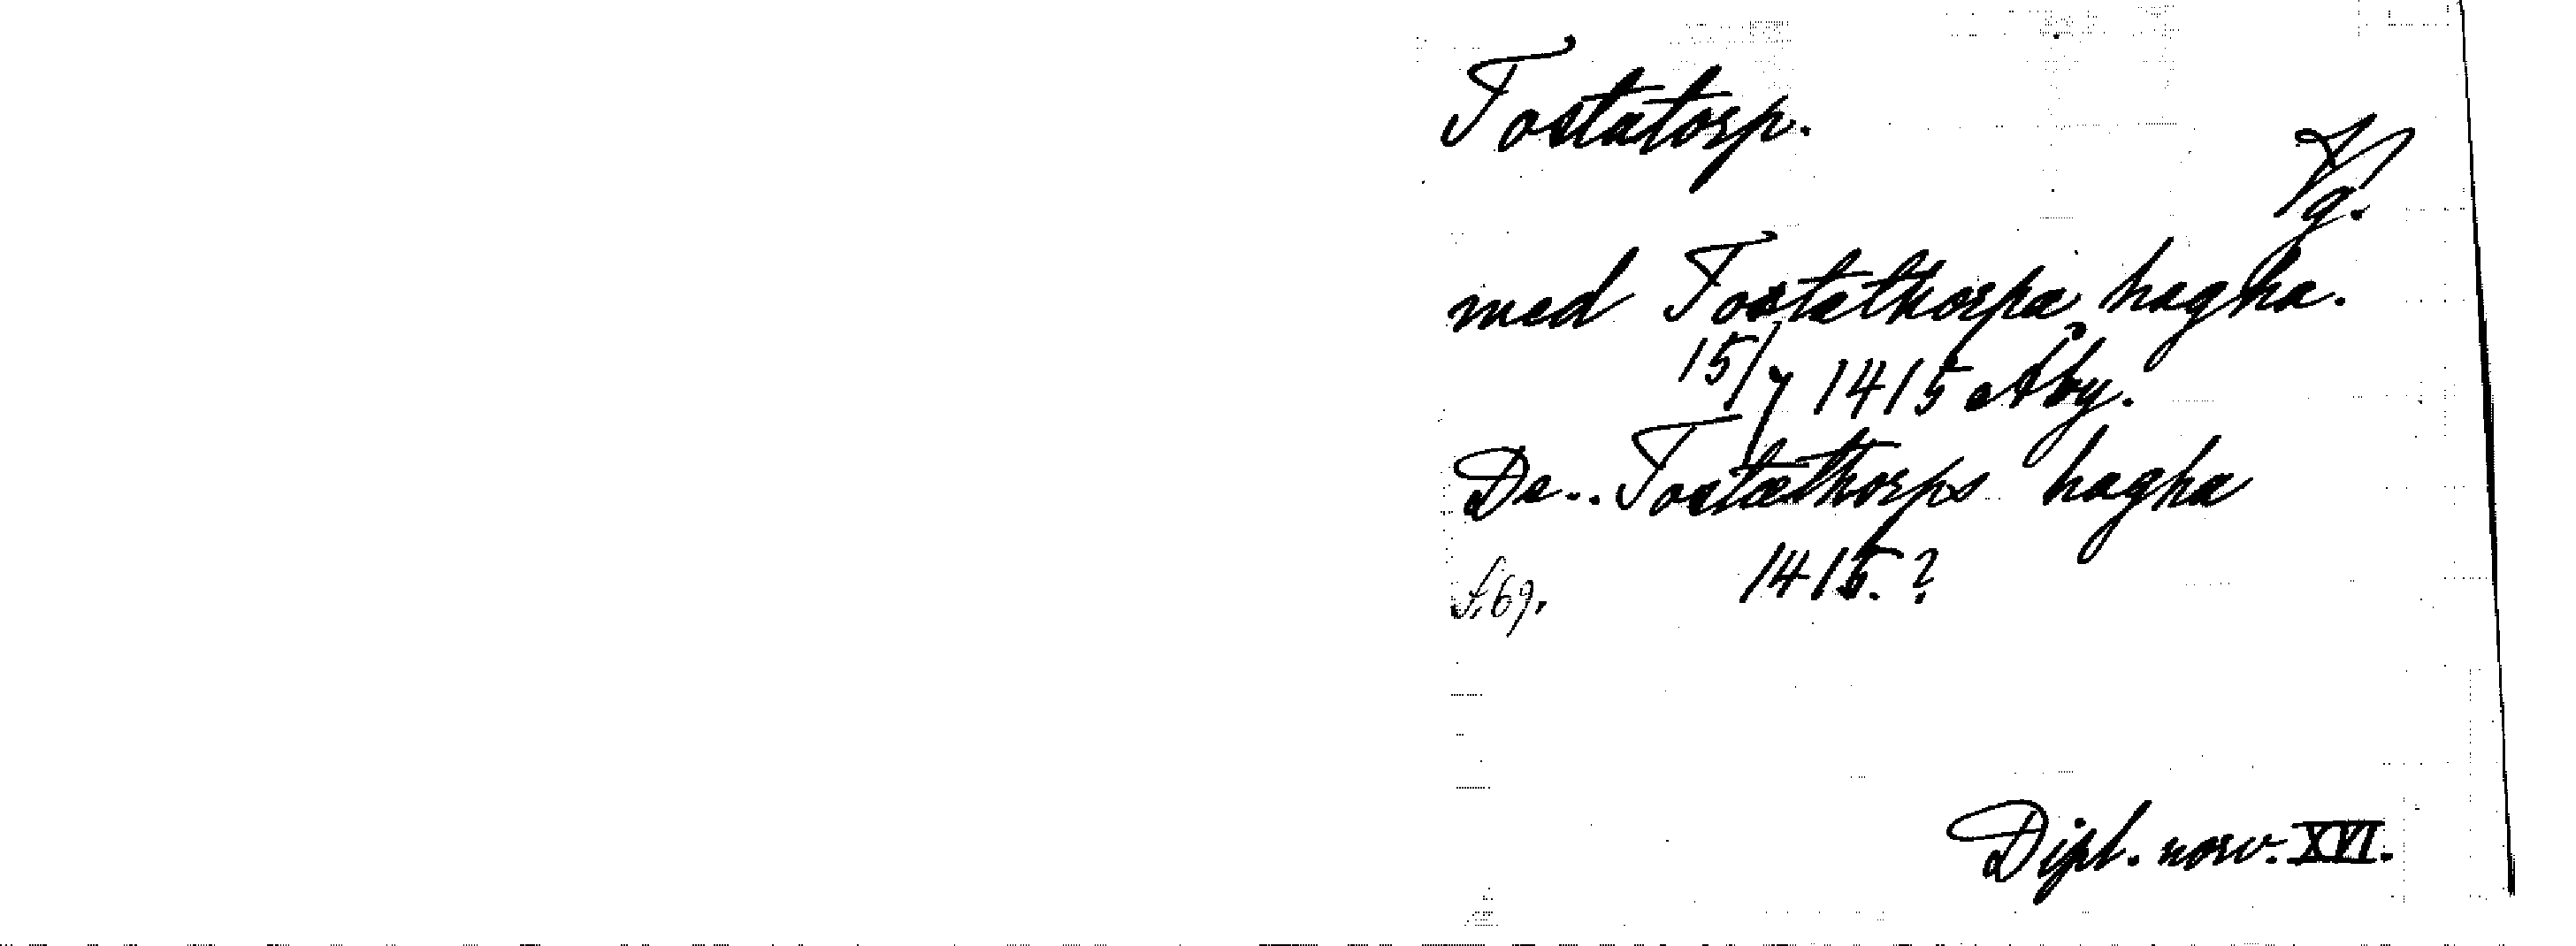 Tostatorp.
Vg.
med Tostathorpa hagha.
15/7 1415 Åby.
De.. Tostæthorps hagha
1415.?
s. 69.
Dipl. norv. XVI.